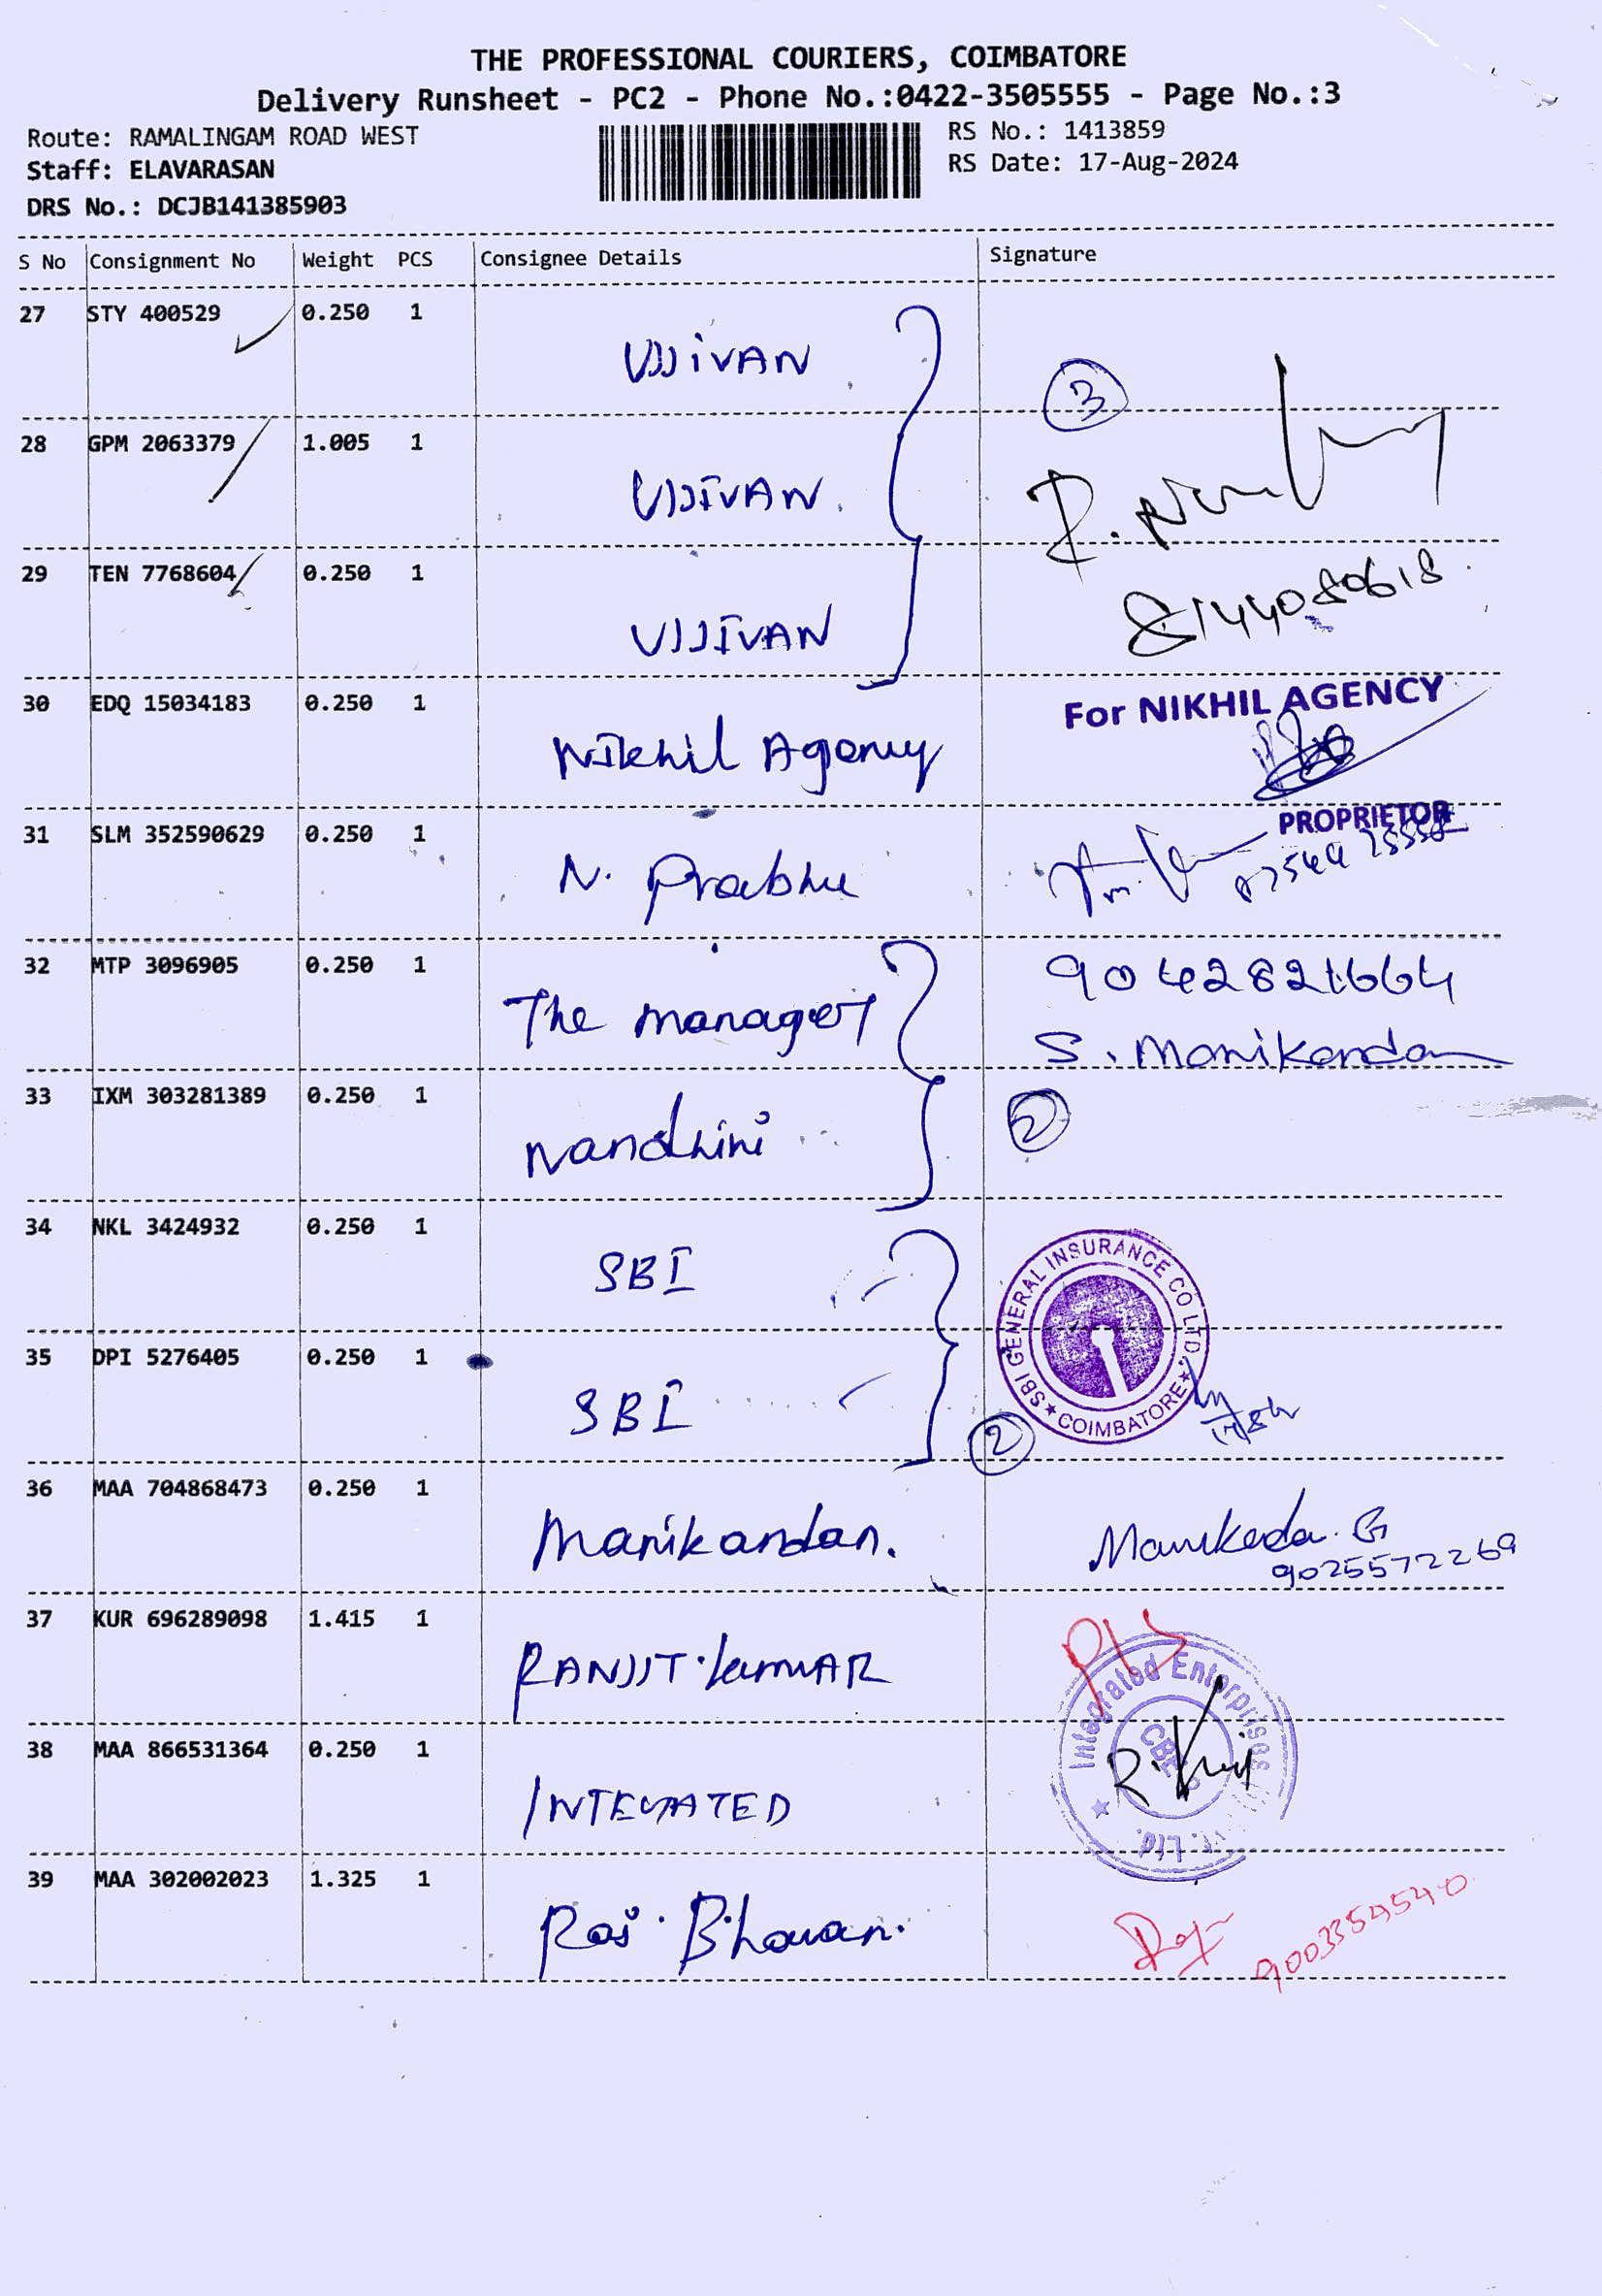 THE PROFESSIONAL COURIERS, COIMBATORE
Delivery Runsheet - PC2 - Phone No.:0422-3505555 - Page No.:3
Route: RAMALINGAM ROAD WEST
RS No.: 1413859
Staff: ELAVARASAN
RS Date: 17-Aug-2024
DRS No.: DCJB141385903
S No Consignment No Weight PCS Consignee Details Signature
27 STY 400529 0.250 1 UJJIVAN
3
28 GPM 2063379 1.005 1 UJJIVAN.
29 TEN 7768604 0.250 1 UJJIVAN
8144080618
30 EDQ 15034183 0.250 1 Nikhil Agency
For NIKHIL AGENCY
PROPRIETOR
31 SLM 352590629 0.250 1 N. Prabhu
32 MTP 3096905 0.250 1 The manager
9042821664
S. Manikandan
33 IXM 303281389 0.250 1 Nandhini
2
34 NKL 3424932 0.250 1 SBI
SBI GENERAL INSURANCE CO LTD. ★ COIMBATORE ★
35 DPI 5276405 0.250 1 SBI
2
36 MAA 704868473 0.250 1 Manikandan.
Manikanda. G
9025572269
37 KUR 696289098 1.415 1 RANJIT.kumAR
Integrated Enterprises
Ltd.
38 MAA 866531364 0.250 1 INTEGRATED
39 MAA 302002023 1.325 1 Raj. Bhavan.
9003359540